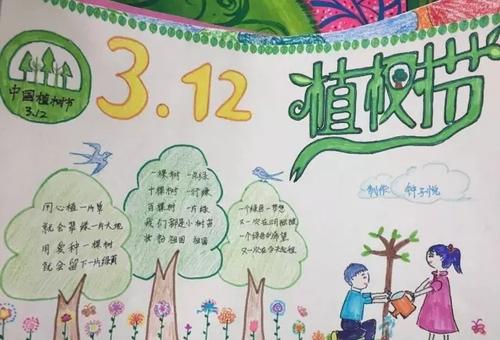 中国植树节
3.12
3.12
植树节
制作 钟子悦
用心植一片草
就会翠绿一片大地
用爱种一棵树
就会留下一片绿荫
一棵树 一点绿
十棵树 一行绿
百棵树 一片绿
我们都是小树苗
妆扮祖国 祖国
一个绿色的梦想
又一次在
一个绿色的希望
又一次在今天起航